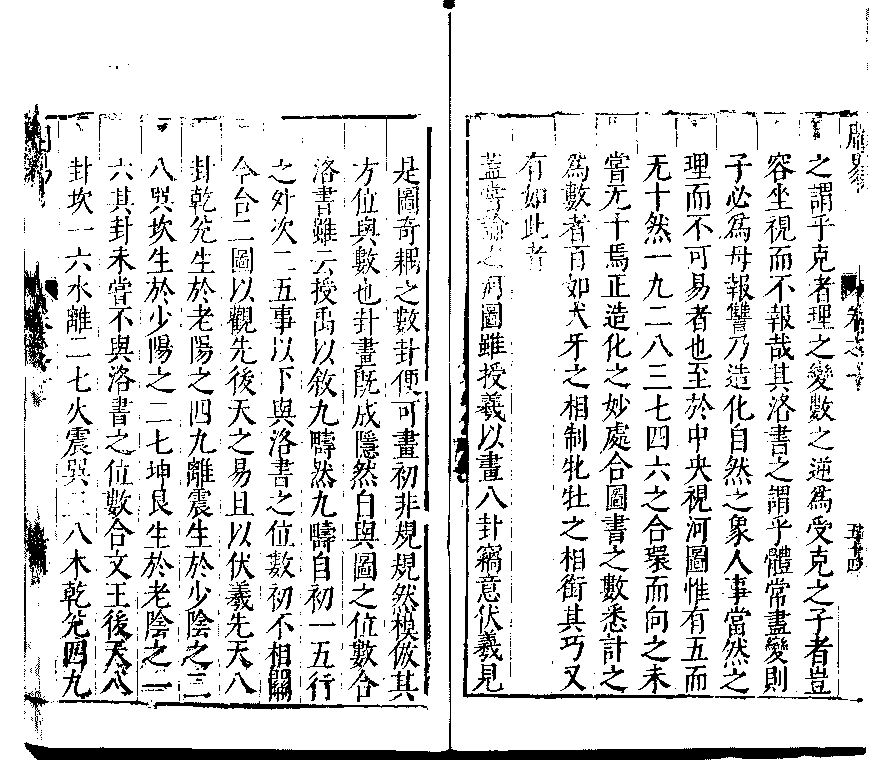 之謂乎克者理之變數之逆為受克之子者豈
容坐視而不報哉其洛書之謂乎體常盡變則
子必為母報讐乃造化自然之象人事當然之
理而不可易者也至於中央視河圖惟有五而
无十然一九二八三七四六之合環而向之未
嘗无十焉正造化之妙處合圖書之數悉計之
為數者百如犬牙之相制牝牡之相銜其巧又
有如此者
蓋嘗論之河圖雖授羲以畫八卦竊意伏羲見
是圖奇耦之數卦便可畫初非規規然模倣其
方位與數也卦畫既成隱然自與圖之位數合
洛書雖云授禹以敘九疇然九疇自初一五行
之外次二五事以下與洛書之位數初不相關
今合二圖以觀先後天之易且以伏羲先天八
卦乾兊生於老陽之四九離震生於少陰之三
八巽坎生於少陽之二七坤艮生於老陰之一
六其卦未嘗不與洛書之位數合文王後天八
卦坎一六水離二七火震巽三八木乾兊四九